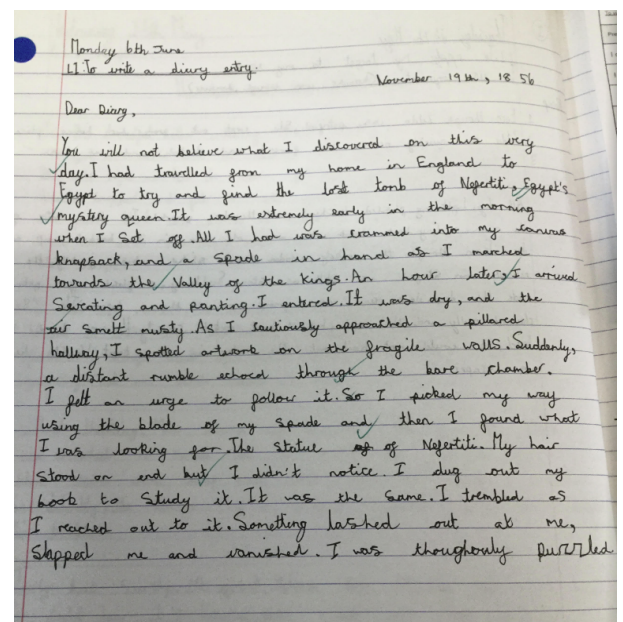 Monday 6th June
LI: To write a diary entry.
November 19th, 1856
Dear Diary,
You will not believe what I discovered on this very
day. I had travelled from my home in England to
Egypt to try and find the lost tomb of Nefertiti, Egypt's
mystery queen. It was extremely early in the morning
when I set off. All I had was crammed into my canvas
knapsack, and a spade in hand as I marched
towards the Valley of the Kings. An hour later, I arrived
Sweating and panting. I entered. It was dry, and the
air smelt musty. As I cautiously approached a pillared
hallway, I spotted artwork on the fragile walls. Suddenly,
a distant rumble echoed through the bare chamber.
I felt an urge to follow it. So I picked my way
using the blade of my spade and then I found what
I was looking for. The statue of Nefertiti. My hair
stood on end but I didn't notice. I dug out my
book to study it. It was the same. I trembled as
I reached out to it. Something lashed out at me,
slapped me and vanished. I was thoughouly puzzled